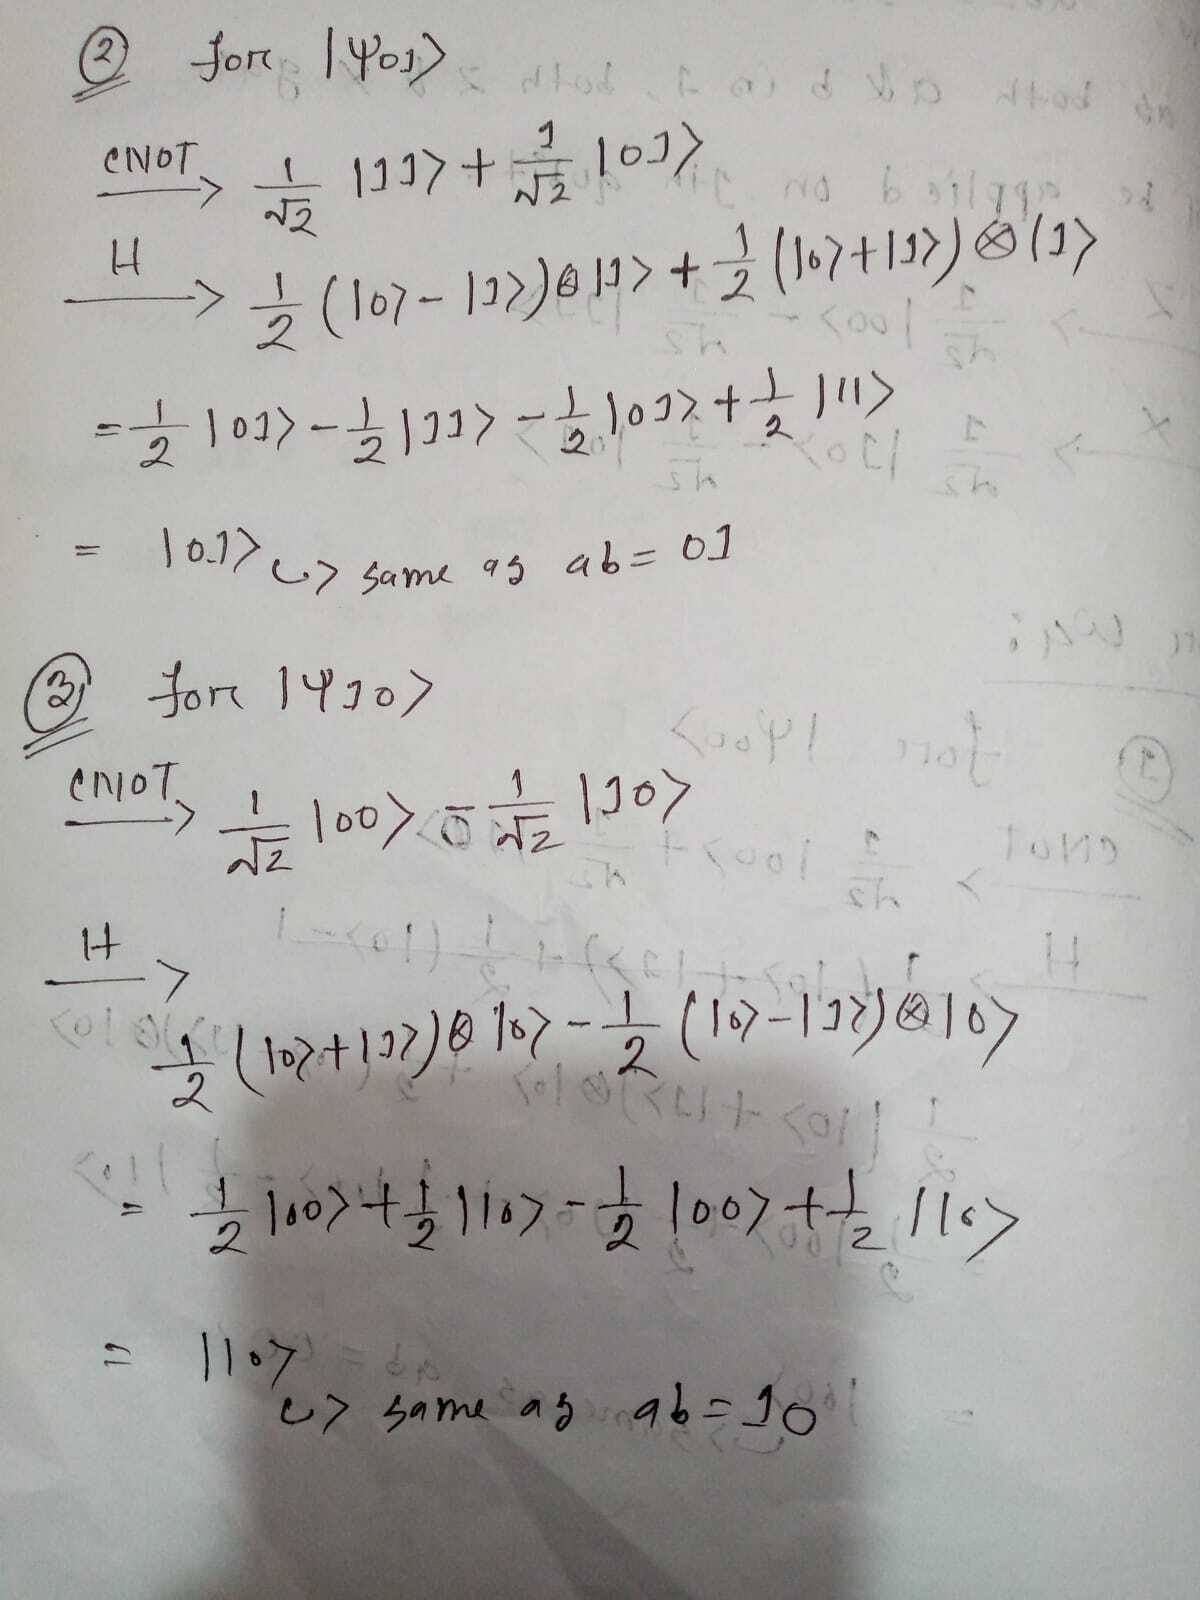 ② for |Ψ01⟩
CNOT → 1/√2 |11⟩ + 1/√2 |01⟩
H → 1/2 (|0⟩ - |1⟩)⊗|1⟩ + 1/2 (|0⟩+|1⟩) ⊗ |1⟩
= 1/2 |01⟩ - 1/2 |11⟩ - 1/2 |01⟩ + 1/2 |11⟩
= |01⟩ ↪ same as ab = 01
③ for |Ψ10⟩
CNOT → 1/√2 |00⟩ - 1/√2 |10⟩
H →
1/2 (|0⟩+|1⟩)⊗|0⟩ - 1/2 (|0⟩-|1⟩)⊗|0⟩
= 1/2 |00⟩ + 1/2 |10⟩ - 1/2 |00⟩ + 1/2 |10⟩
= |10⟩
↪ same as ab = 10